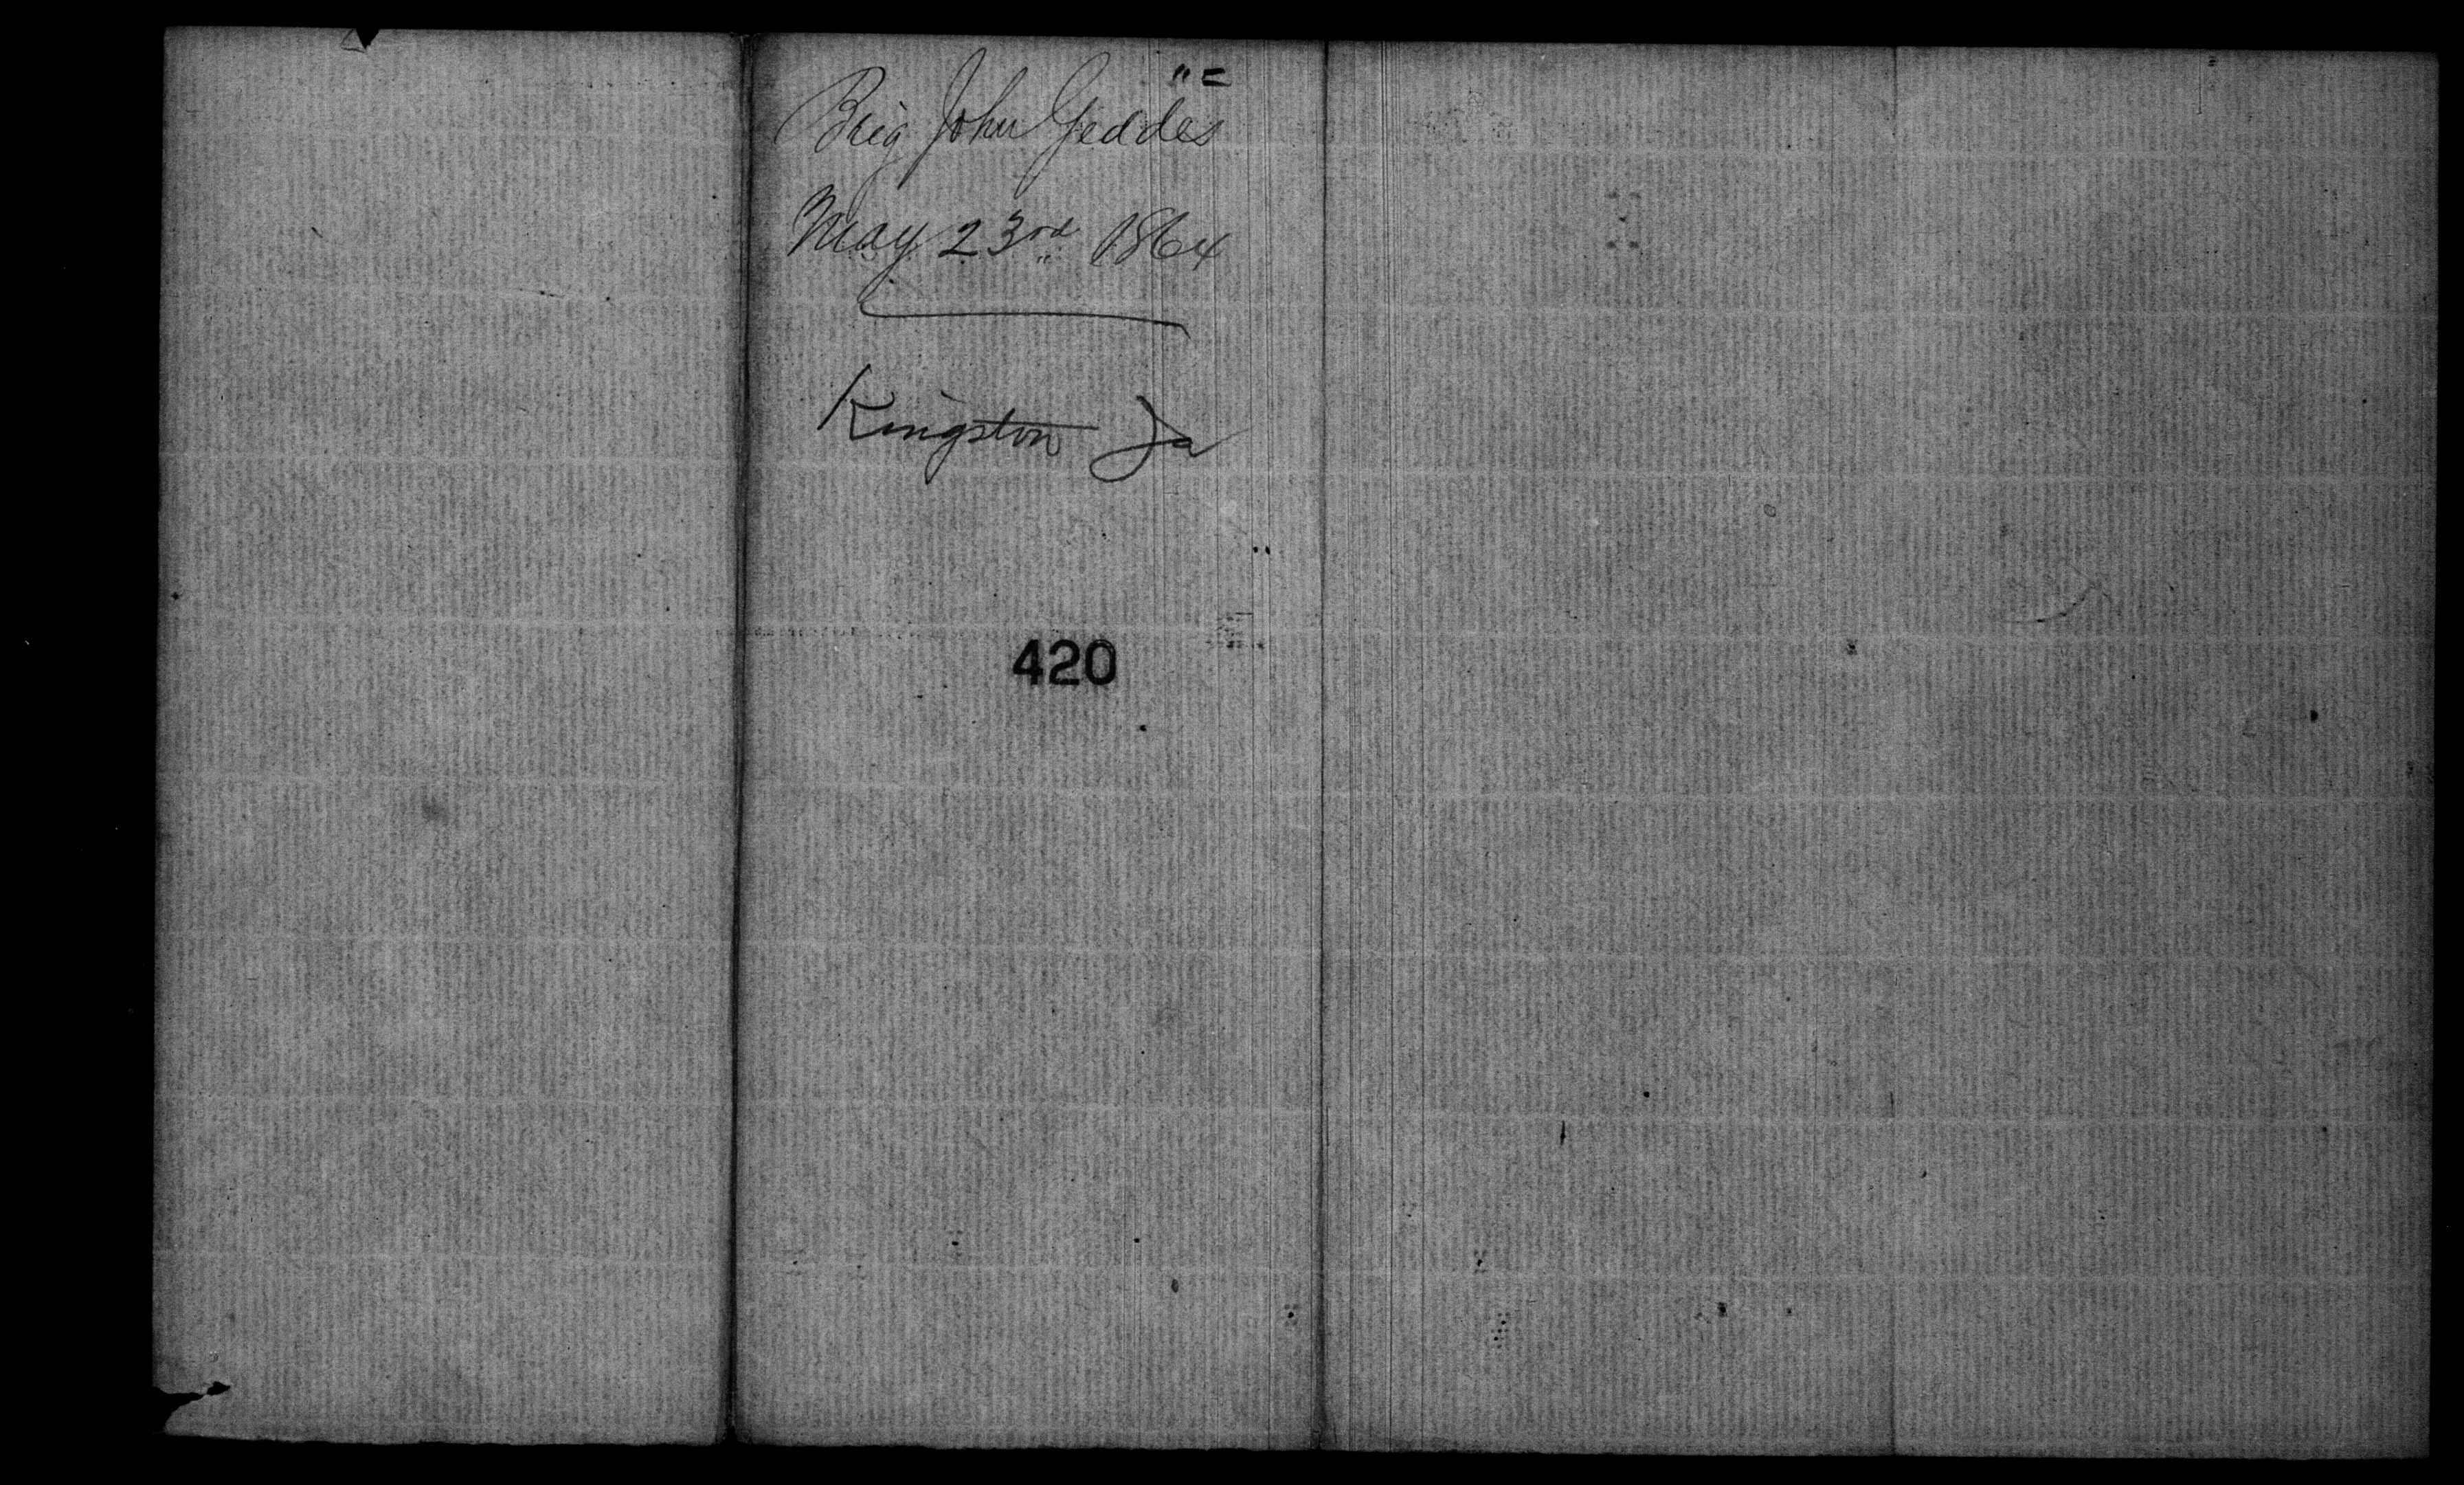 Brig John Geddes
May 23rd 1864
Kingston Ja
420